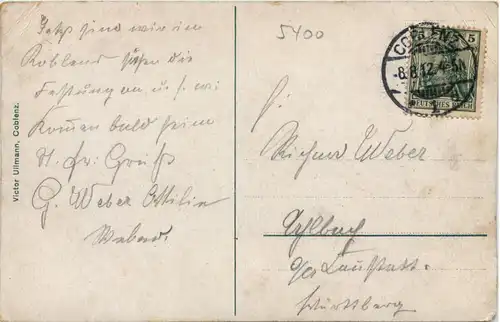 Jetzt sind wir in
Koblenz sehen die
Festung an u. s. w.
Komen bald heim
H. fr. Gruß
G. Weber Ottilie
Weber.
Victor Ullmann, Coblenz.
5400
COBLENZ
-8.8.12
5
DEUTSCHES REICH
H.
Richard Weber
Württemberg